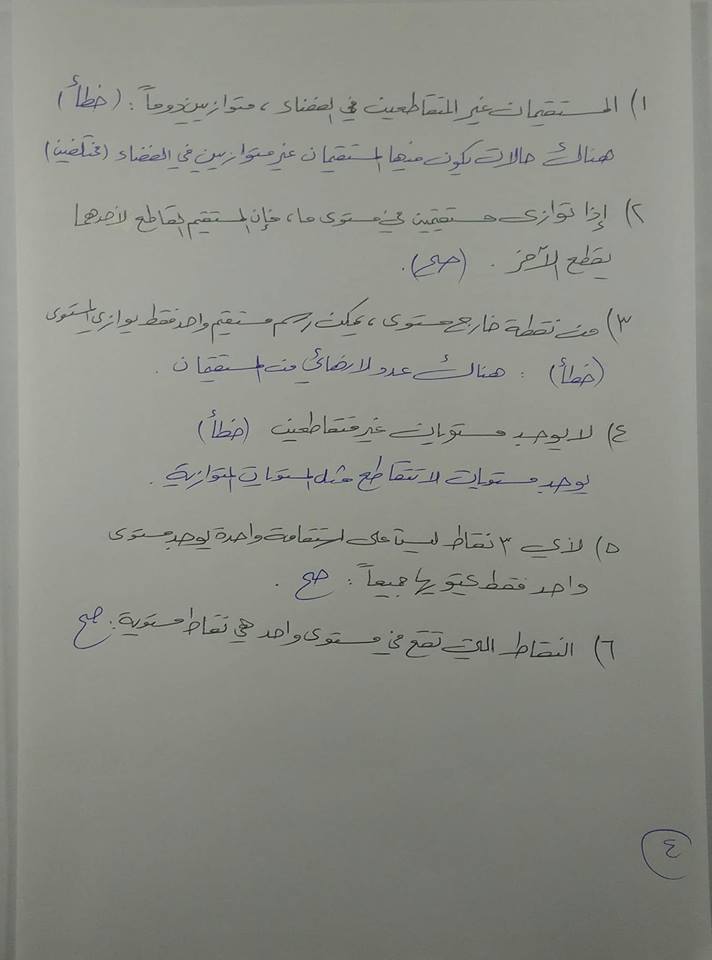 ١) المستقيمان غير المتقاطعين في الفضاء، متوازيين دوماً: (خطأ)
هناك حالات يكون منها المستقيمان غير متوازيين في الفضاء (مختلفين)
٢) إذا توازى مستقيمين في مستوى ما، فإن المستقيم القاطع لأحدهما
يقطع الآخر. (صح).
٣) من نقطة خارج مستوى، يمكن رسم مستقيم واحد فقط يوازي المستوى
(خطأ) : هناك عدد لا نهائي من المستقيمان.
٤) لا يوجد مستويان غير متقاطعين (خطأ)
يوجد مستويات لا تتقاطع مثل المستويات المتوازية.
٥) لأي ٣ نقاط ليست على استقامة واحدة يوجد مستوى
واحد فقط يحتويها جميعاً: صح.
٦) النقاط التي تقع في مستوى واحد هي نقاط مستوية: صح
٤